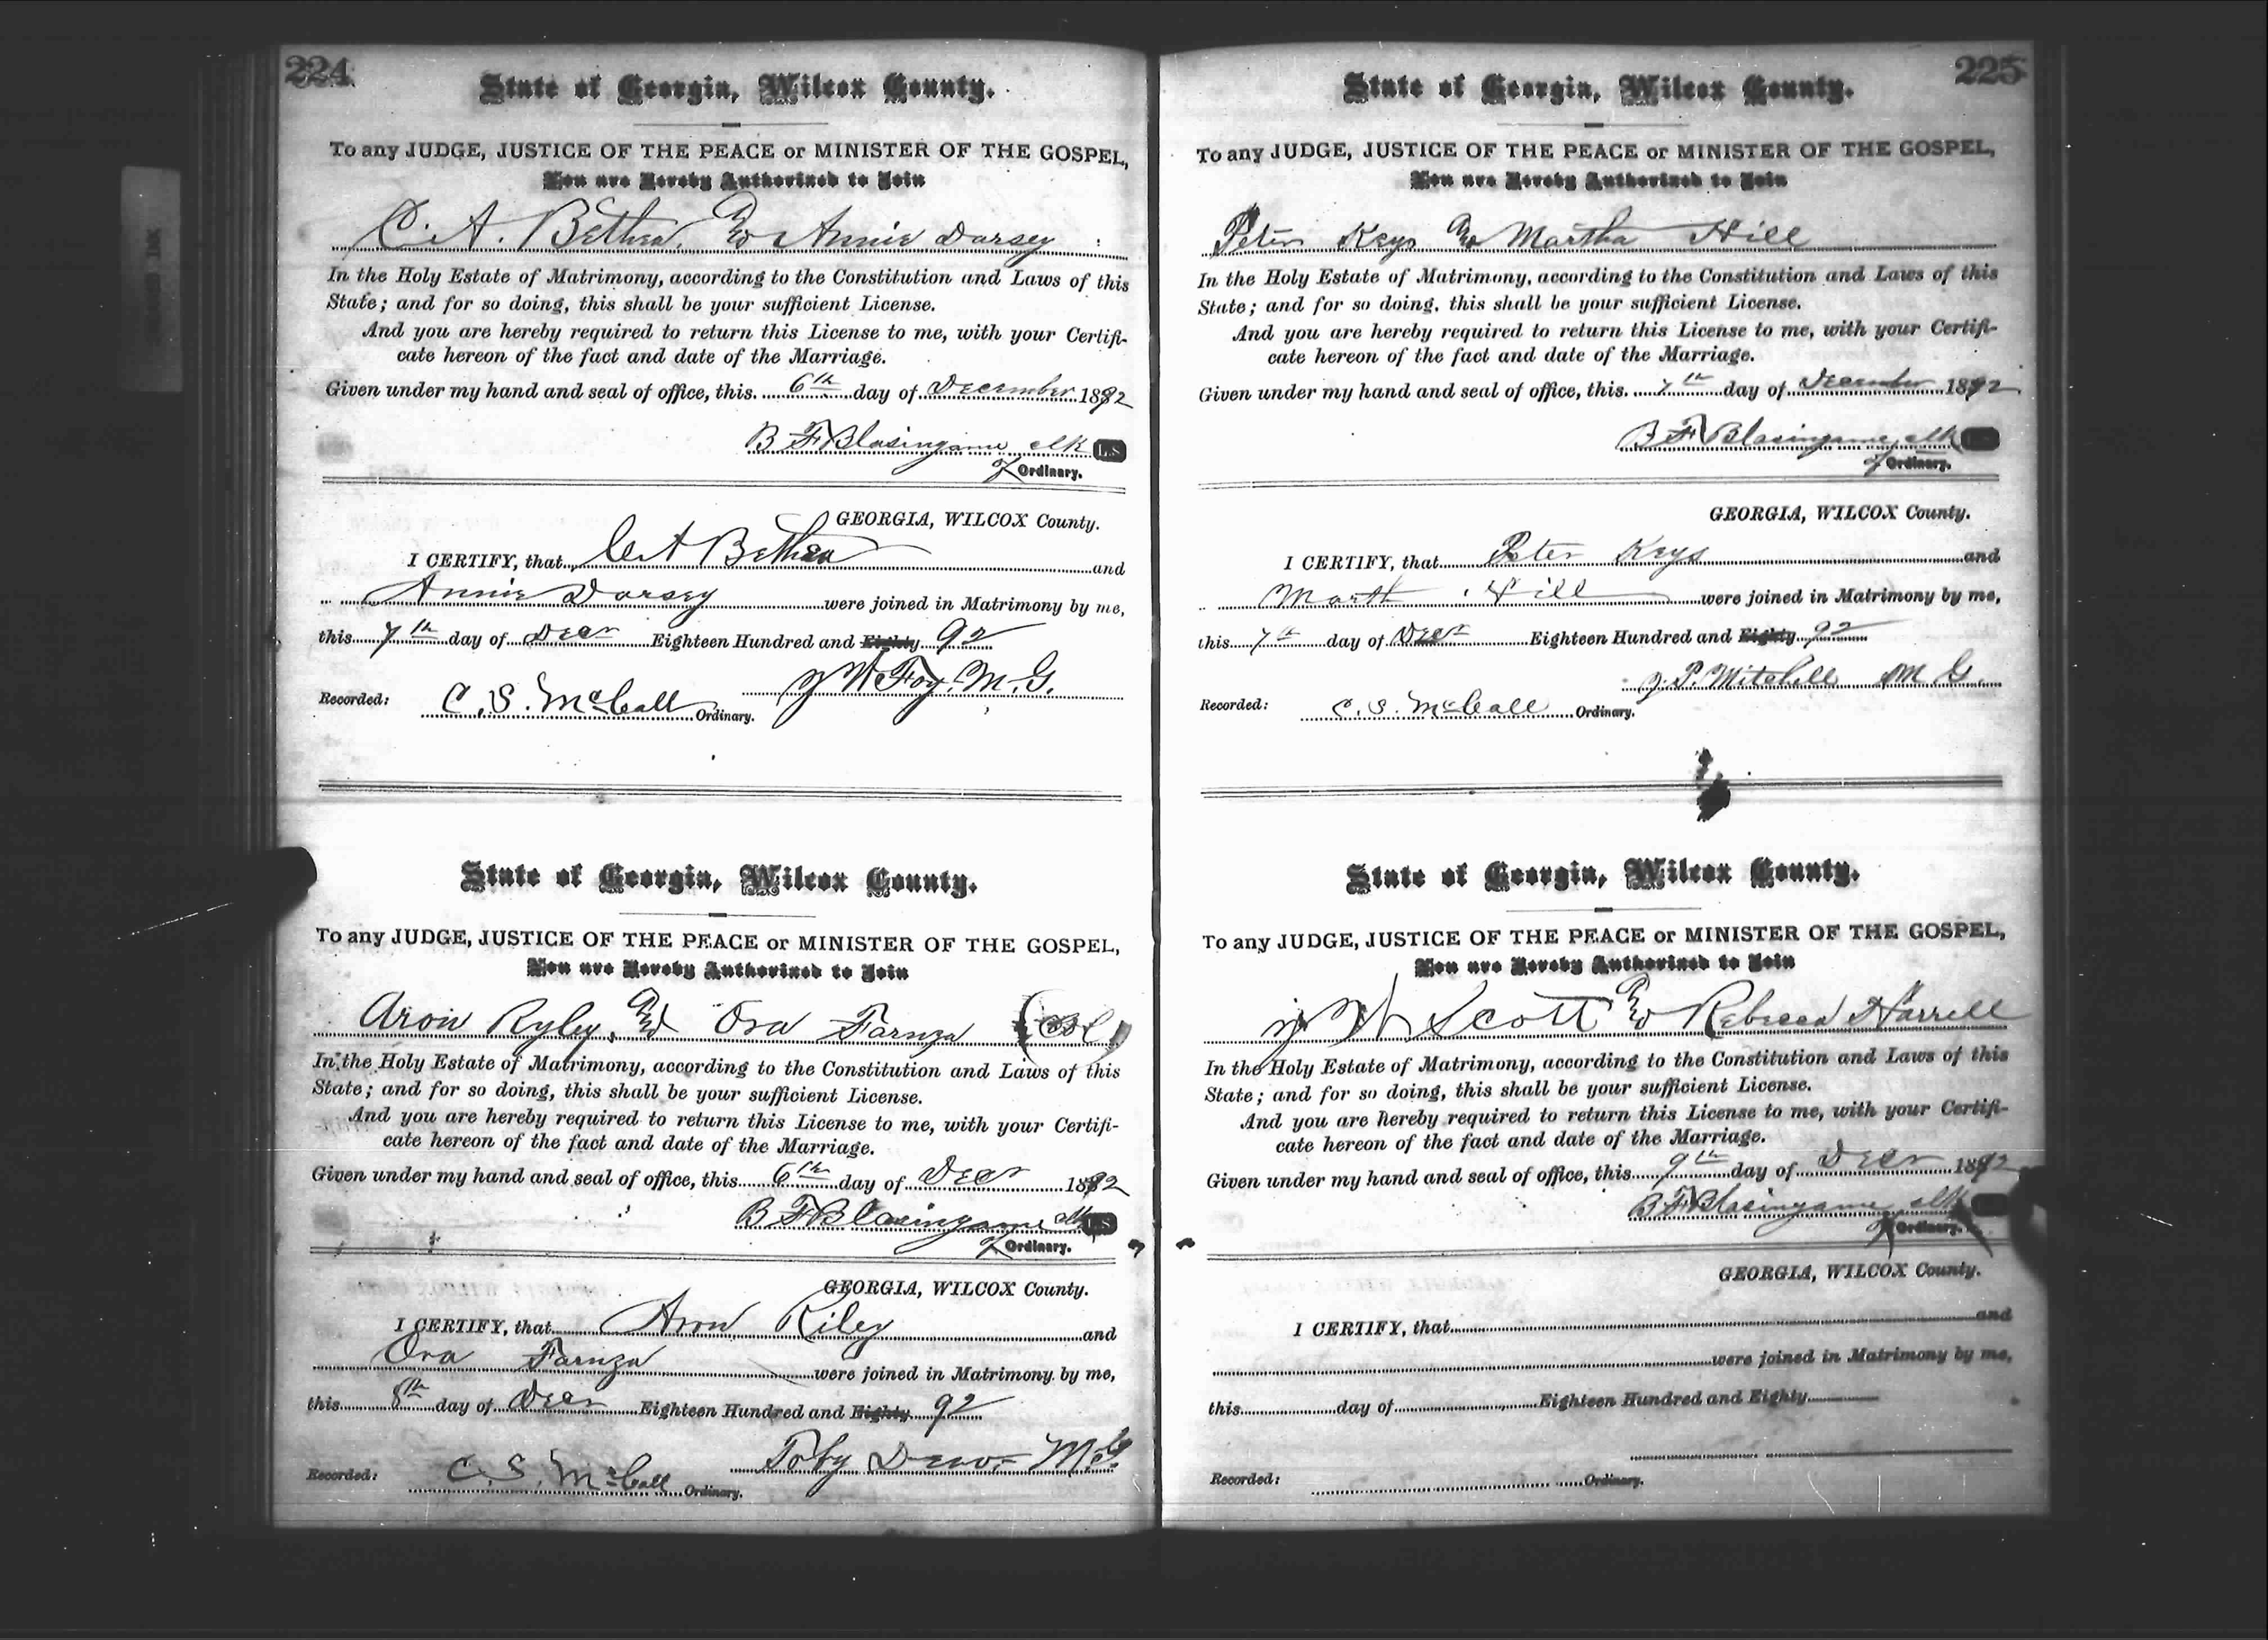 224
State of Georgia, Wilcox County.
To any JUDGE, JUSTICE OF THE PEACE or MINISTER OF THE GOSPEL,
You are Hereby Authorized to Join
C. A. Bethea & Annie Dorsey
In the Holy Estate of Matrimony, according to the Constitution and Laws of this
State; and for so doing, this shall be your sufficient License.
And you are hereby required to return this License to me, with your Certifi-
cate hereon of the fact and date of the Marriage.
Given under my hand and seal of office, this 6th day of December 1892
B F Blasingame clk L.S
of Ordinary.
GEORGIA, WILCOX County.
I CERTIFY, that C A Bethea and
Annie Dorsey were joined in Matrimony by me,
this 7th day of Decr Eighteen Hundred and Eighty 92
J W Foy. M. G.
Recorded: C. S. McCall Ordinary.
State of Georgia, Wilcox County.
To any JUDGE, JUSTICE OF THE PEACE or MINISTER OF THE GOSPEL,
You are Hereby Authorized to Join
Aron Ryley, & Ora Farnza (Col)
In the Holy Estate of Matrimony, according to the Constitution and Laws of this
State; and for so doing, this shall be your sufficient License.
And you are hereby required to return this License to me, with your Certifi-
cate hereon of the fact and date of the Marriage.
Given under my hand and seal of office, this 6th day of Decr 1892
B F Blasingame clk LS
of Ordinary.
GEORGIA, WILCOX County.
I CERTIFY, that Aron Riley and
Ora Farnza were joined in Matrimony by me,
this 8th day of Decr Eighteen Hundred and Eighty 92
Toby M.G.
Recorded: C. S. McCall Ordinary.
225
State of Georgia, Wilcox County.
To any JUDGE, JUSTICE OF THE PEACE or MINISTER OF THE GOSPEL,
You are Hereby Authorized to Join
Peter Keys & Martha Hill
In the Holy Estate of Matrimony, according to the Constitution and Laws of this
State; and for so doing, this shall be your sufficient License.
And you are hereby required to return this License to me, with your Certifi-
cate hereon of the fact and date of the Marriage.
Given under my hand and seal of office, this 7th day of December 1892
B F Blasingame, clk
of Ordinary.
GEORGIA, WILCOX County.
I CERTIFY, that Peter Keys and
Marth Hill were joined in Matrimony by me,
this 7th day of Decr Eighteen Hundred and Eighty 92
J. P. Mitchell M G.
Recorded: C. S. McCall Ordinary.
State of Georgia, Wilcox County.
To any JUDGE, JUSTICE OF THE PEACE or MINISTER OF THE GOSPEL,
You are Hereby Authorized to Join
J W Scott & Rebecca Harrell
In the Holy Estate of Matrimony, according to the Constitution and Laws of this
State; and for so doing, this shall be your sufficient License.
And you are hereby required to return this License to me, with your Certifi-
cate hereon of the fact and date of the Marriage.
Given under my hand and seal of office, this 9th day of Decr 1892
B F Blasingame clk
of Ordinary.
GEORGIA, WILCOX County.
I CERTIFY, that and
were joined in Matrimony by me,
this day of Eighteen Hundred and Eighty
Recorded: Ordinary.